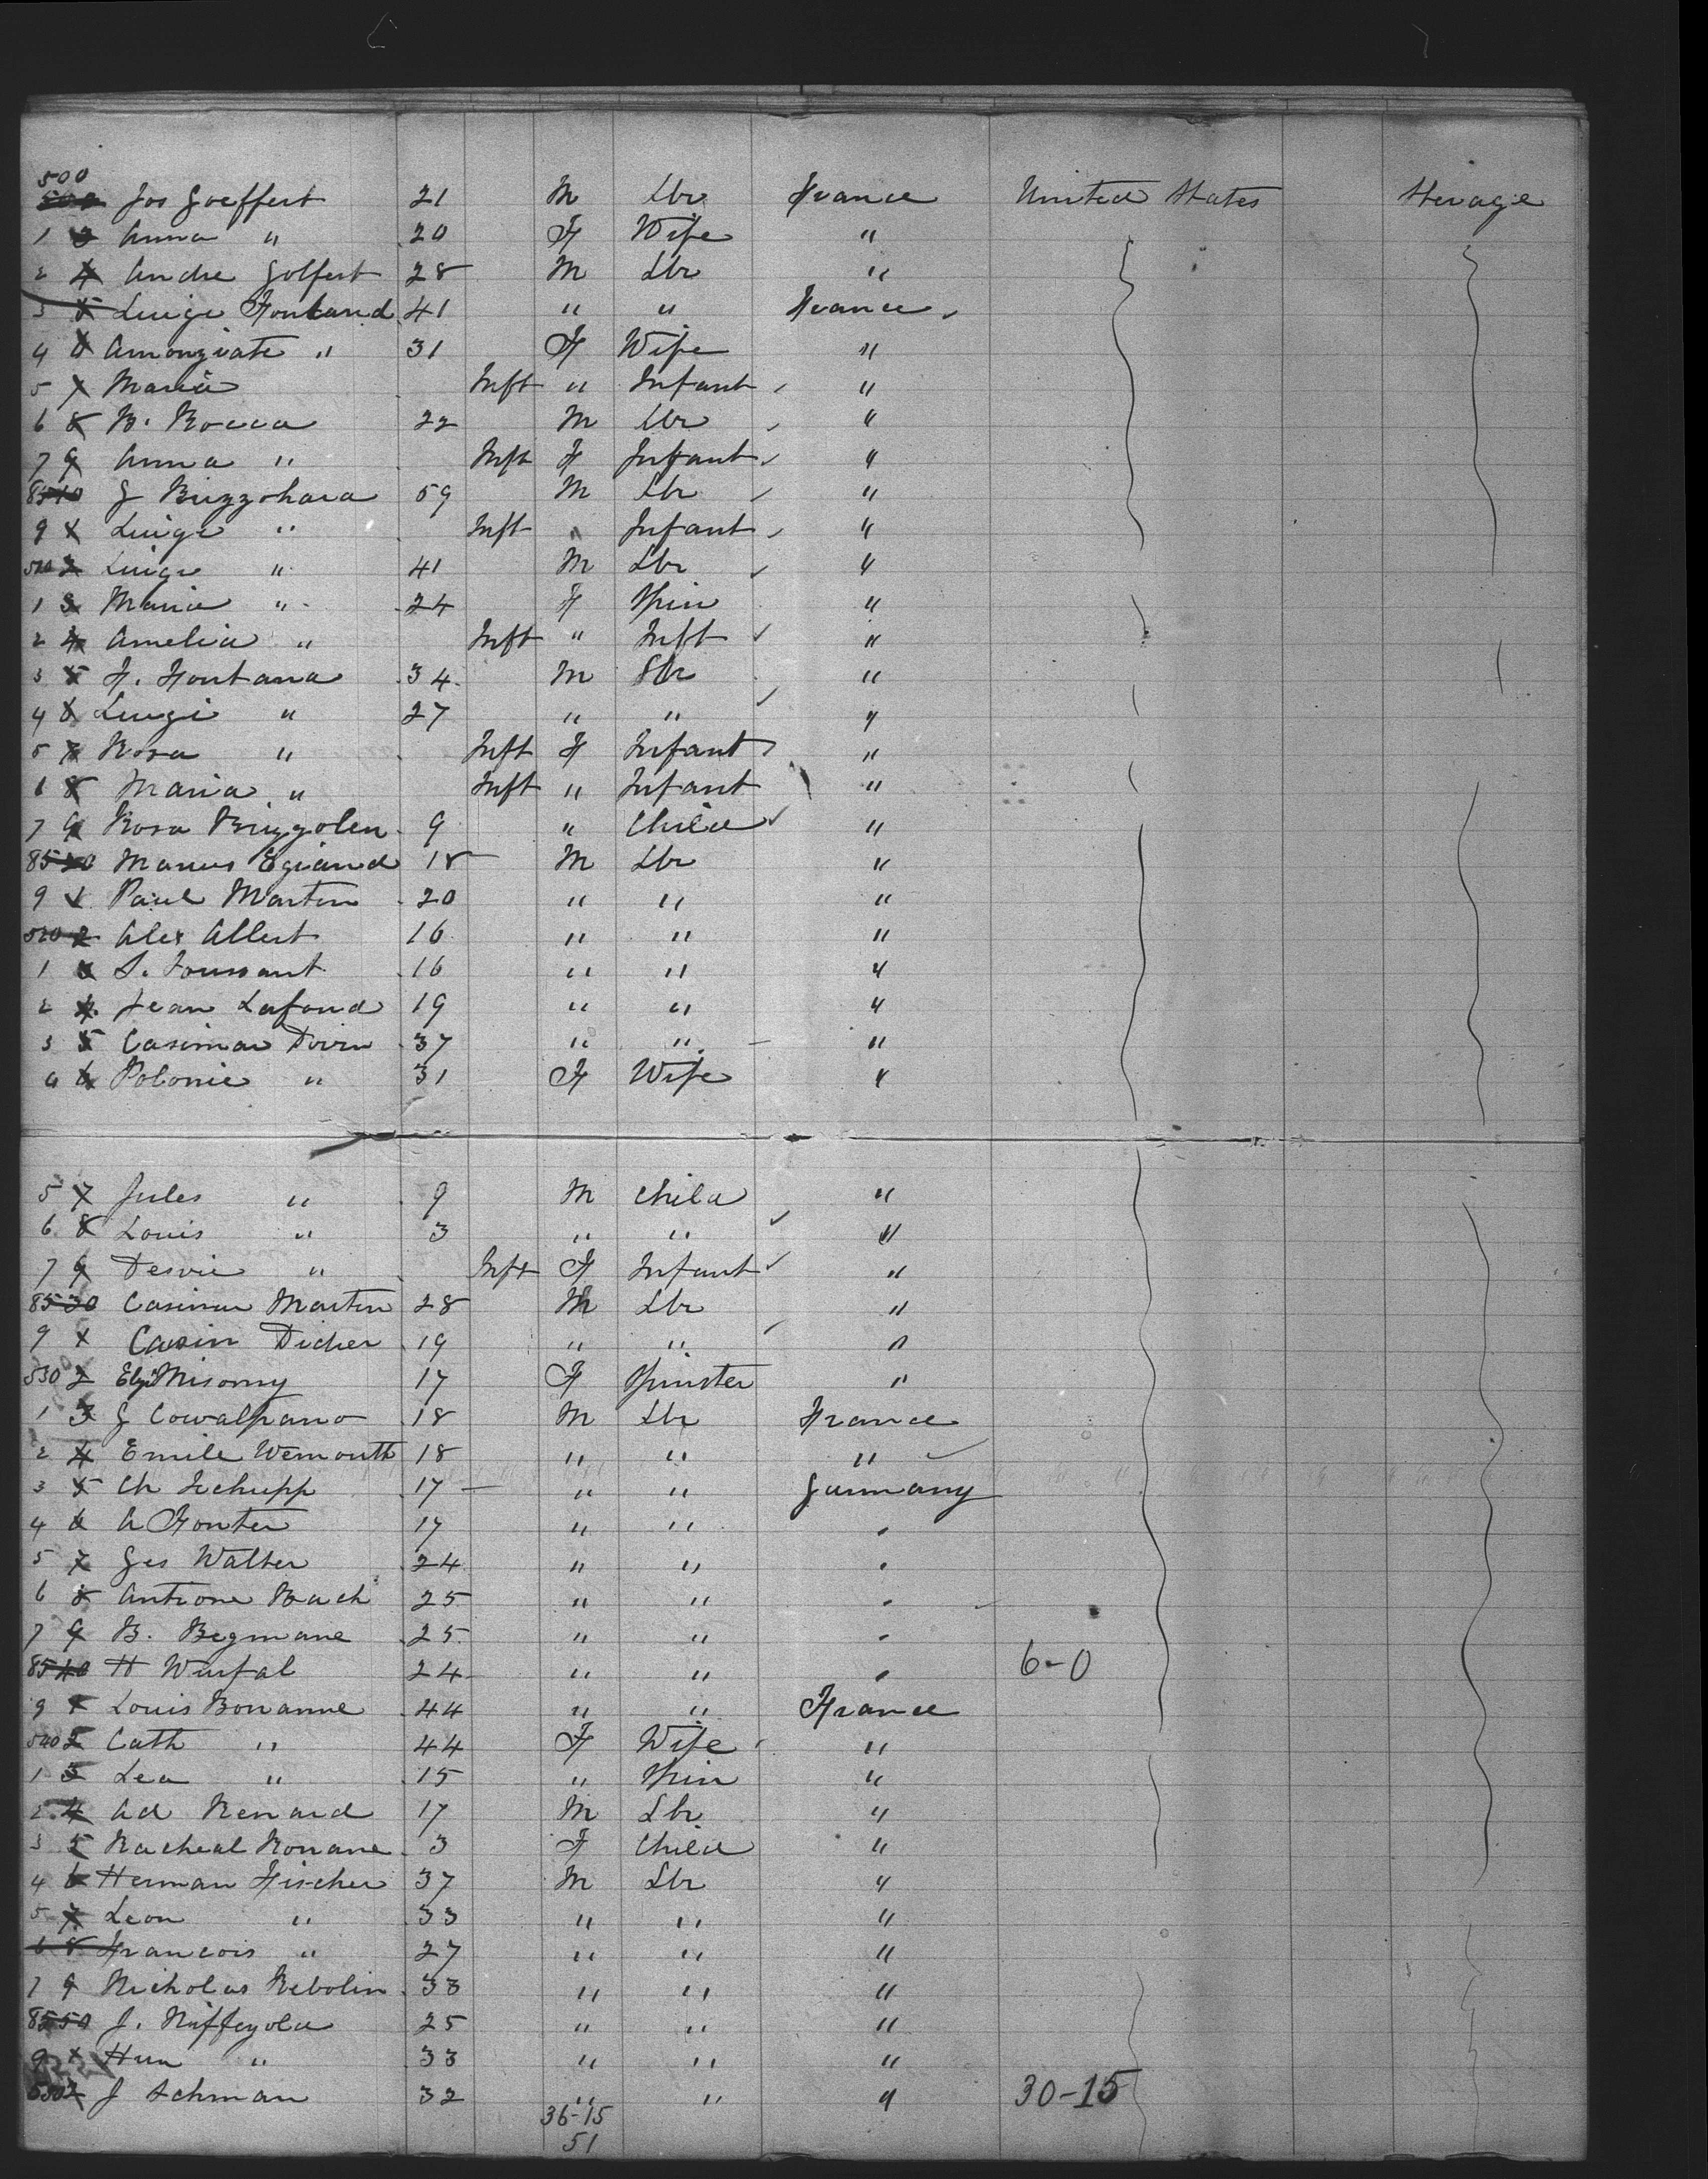 500 Jos Goeffert 21 M Lbr France United States Sterage
1 Anna " 20 F Wife "
2 Andre Golfert 28 M Lbr "
3 Luigi 41 " " France
4 " 31 F Wife "
5 Maria Inft " Infant "
6 B. Rocca 22 M Lbr "
7 Anna " Inft F Infant "
8 G Buzzohara 59 M Lbr "
9 Luigi " Inft " Infant "
510 Luigi " 41 M Lbr "
1 Maria " 24 F Spin "
2 Amelia " Inft " Inft "
3 F. Fontana 34 M "
4 Luigi " 27 " " "
5 Rosa " Inft F Infant "
6 Maria " Inft " Infant "
7 Rosa 9 " Child "
8 18 M Lbr "
9 Paul Martin 20 " " "
520 Alex Albert 16 " " "
1 16 " " "
2 Jean Lafond 19 " " "
3 37 " " "
4 Polonie " 31 F Wife "
5 Jules " 9 M Child "
6 Louis " 3 " " "
7 " Inft F Infant "
8 Martin 28 M Lbr "
9 Didier 19 " " "
530 17 F Spinster "
1 G 18 M Lbr France
2 Emile Wemouth 18 " " "
3 Ch 17 " " Germany
4 A 17 " " "
5 Walter 24 " " "
6 Bach 25 " " "
7 B. Begmane 25 " " "
8 H 24 " " " 6-0
9 Louis Bonanne 44 " " France
540 Cath " 44 F Wife "
1 Lea " 15 " Spin "
2 Ad Renard 17 M Lbr "
3 Racheal 3 F Child "
4 Herman Fischer 37 M Lbr "
5 Leon " 33 " " "
6 Francois " 27 " " "
7 Nicholas Rebolin 33 " " "
8 J. 25 " " "
9 " 33 " " "
550 J 32 " " " 30-15
36-15
51